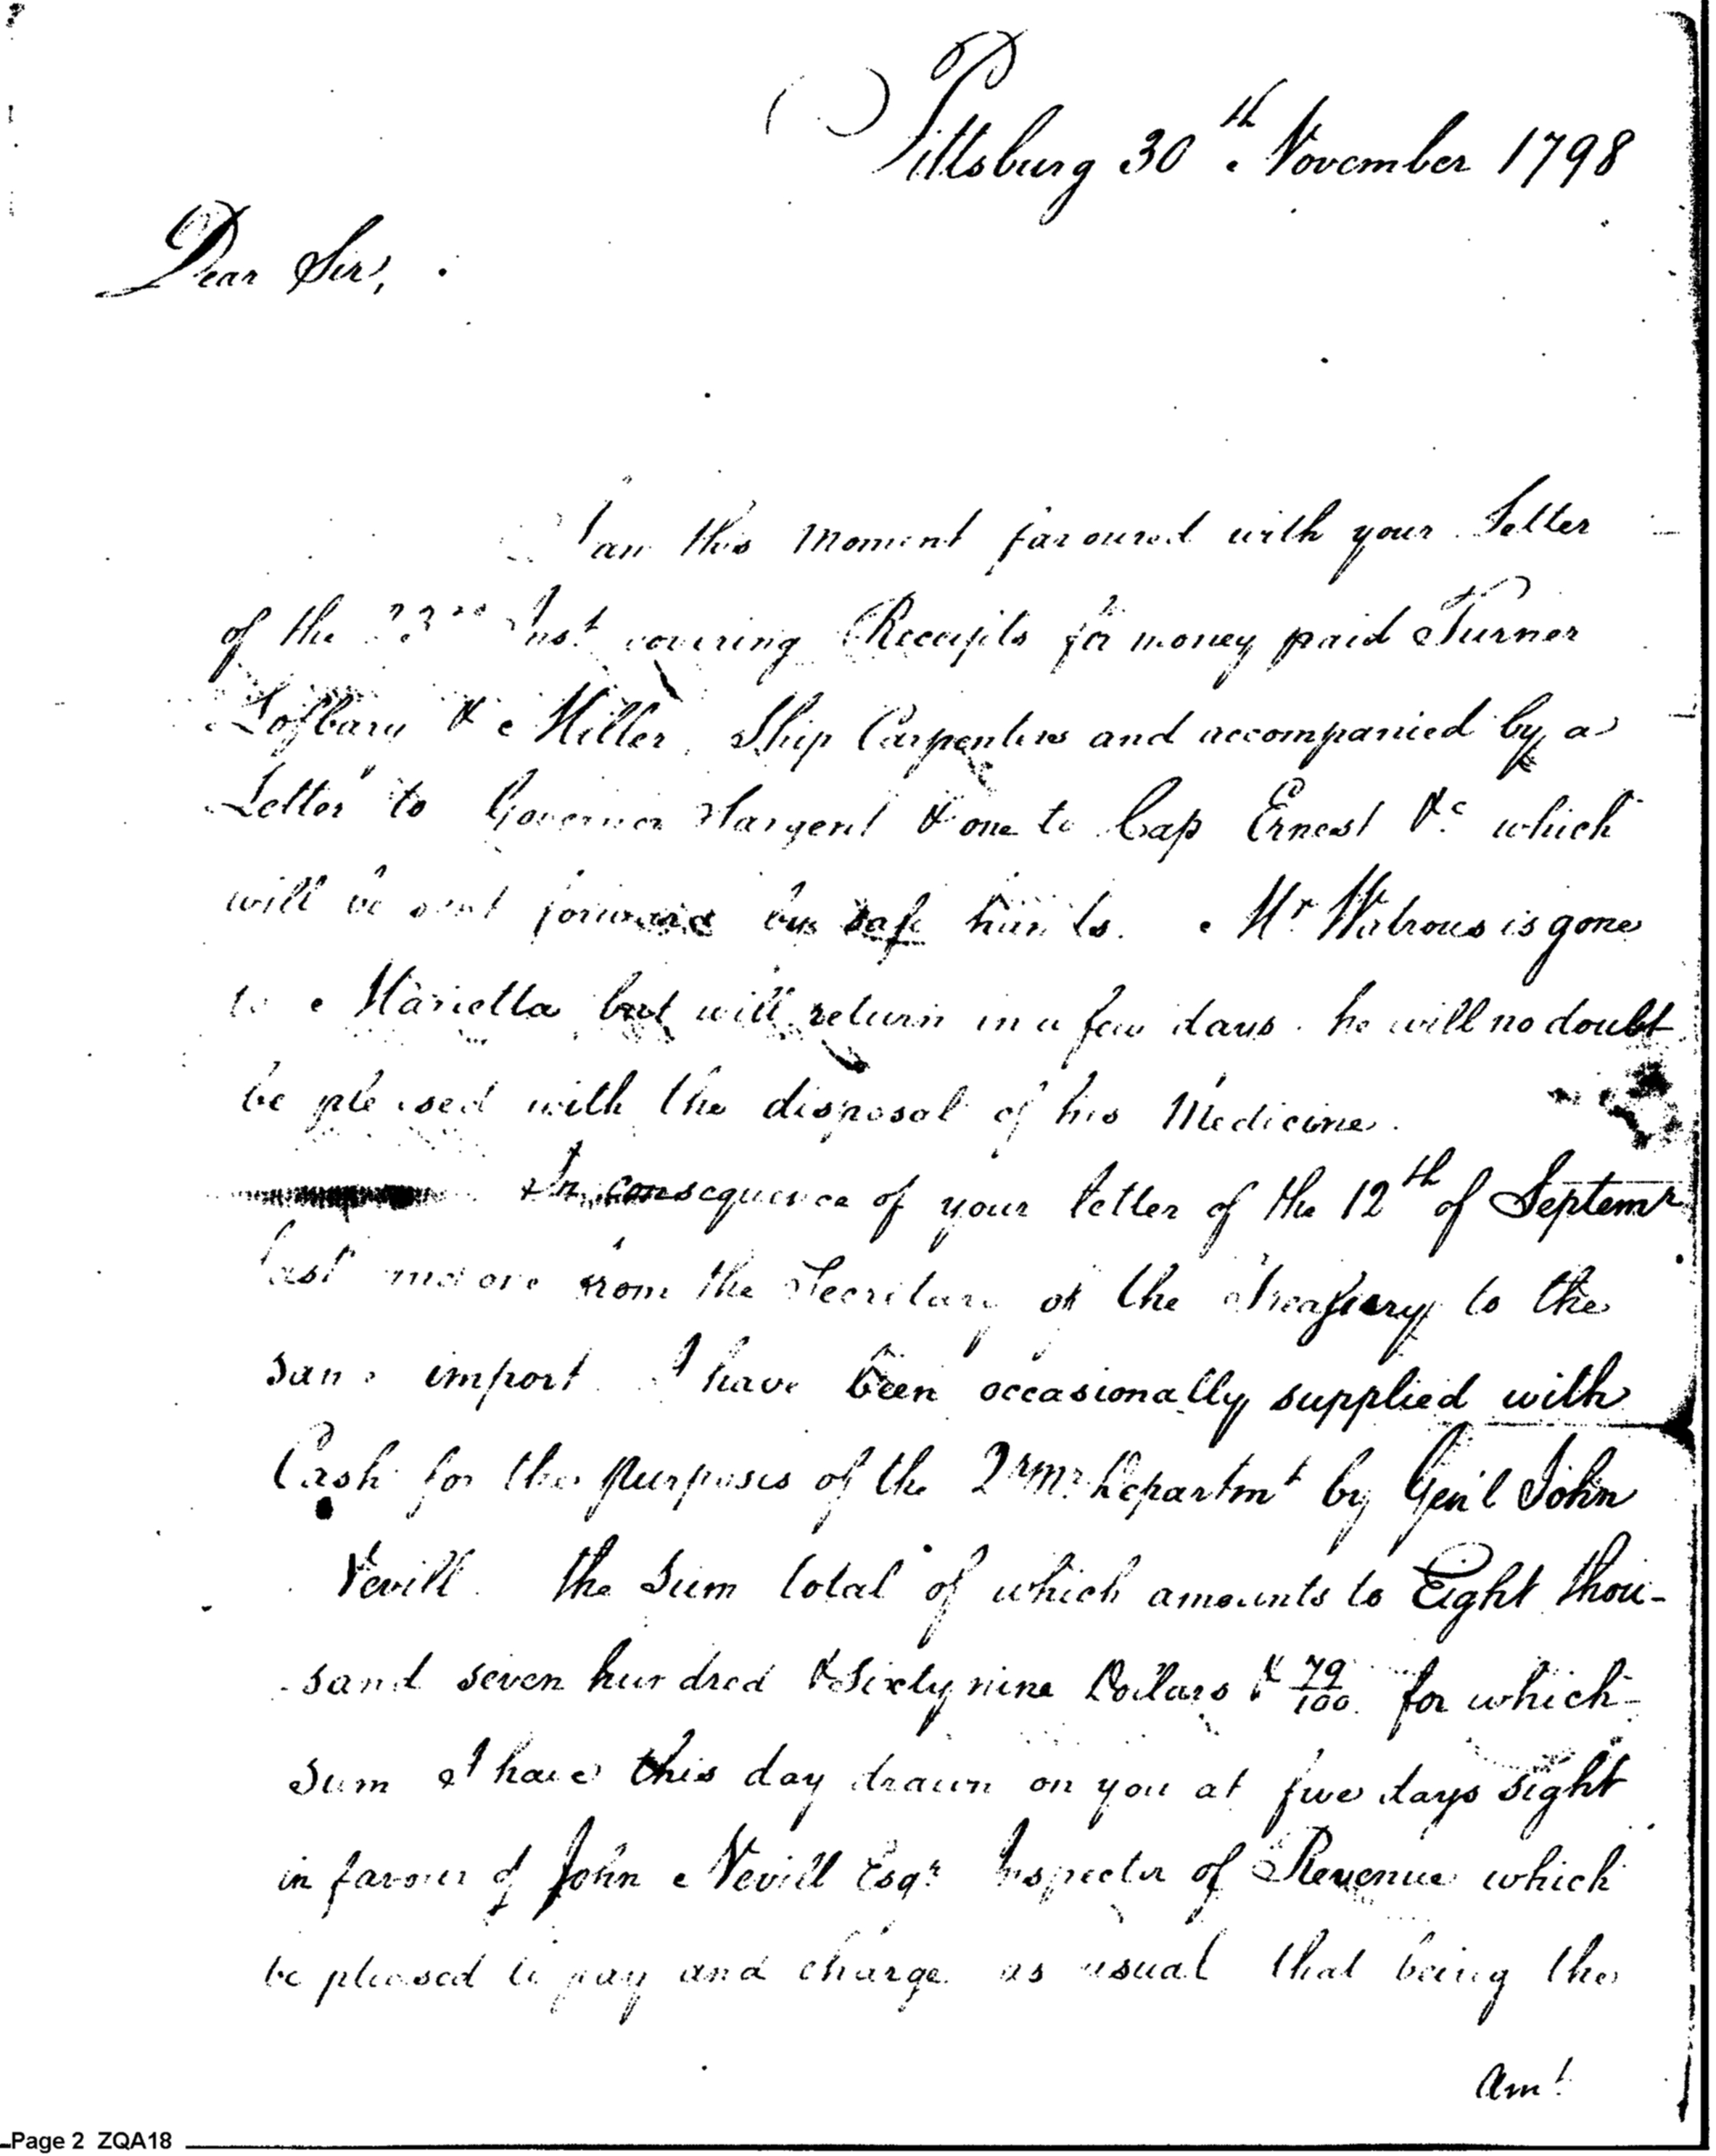 Pittsburg 30th November 1798
Dear Sir,
I am this Moment favoured with your Letter
of the 23rd Inst covering Receipts for money paid Turner
Lofbary & Miller, Ship Carpenters and accompanied by a
Letter to Governor Sargent & one to Cap Ernest &c which
will be sent forward by safe hands. Mr Watrous is gone
to Marietta but will return in a few days. he will no doubt
be pleased with the disposal of his Medicine.
In consequence of your letter of the 12th of Septemr
last and one from the Secretary of the Treasury to the
same import I have been occasionally supplied with
Cash for the purposes of the Qrmr Departmt by Gen'l John
Nevill. the Sum total of which amounts to Eight thou-
sand seven hundred & Sixty nine Dollars & 79/100 for which
Sum I have this day drawn on you at five days sight
in favour of John Nevill Esqr Inspector of Revenue which
be pleased to pay and charge as usual that being the
Amt
Page 2 ZQA18